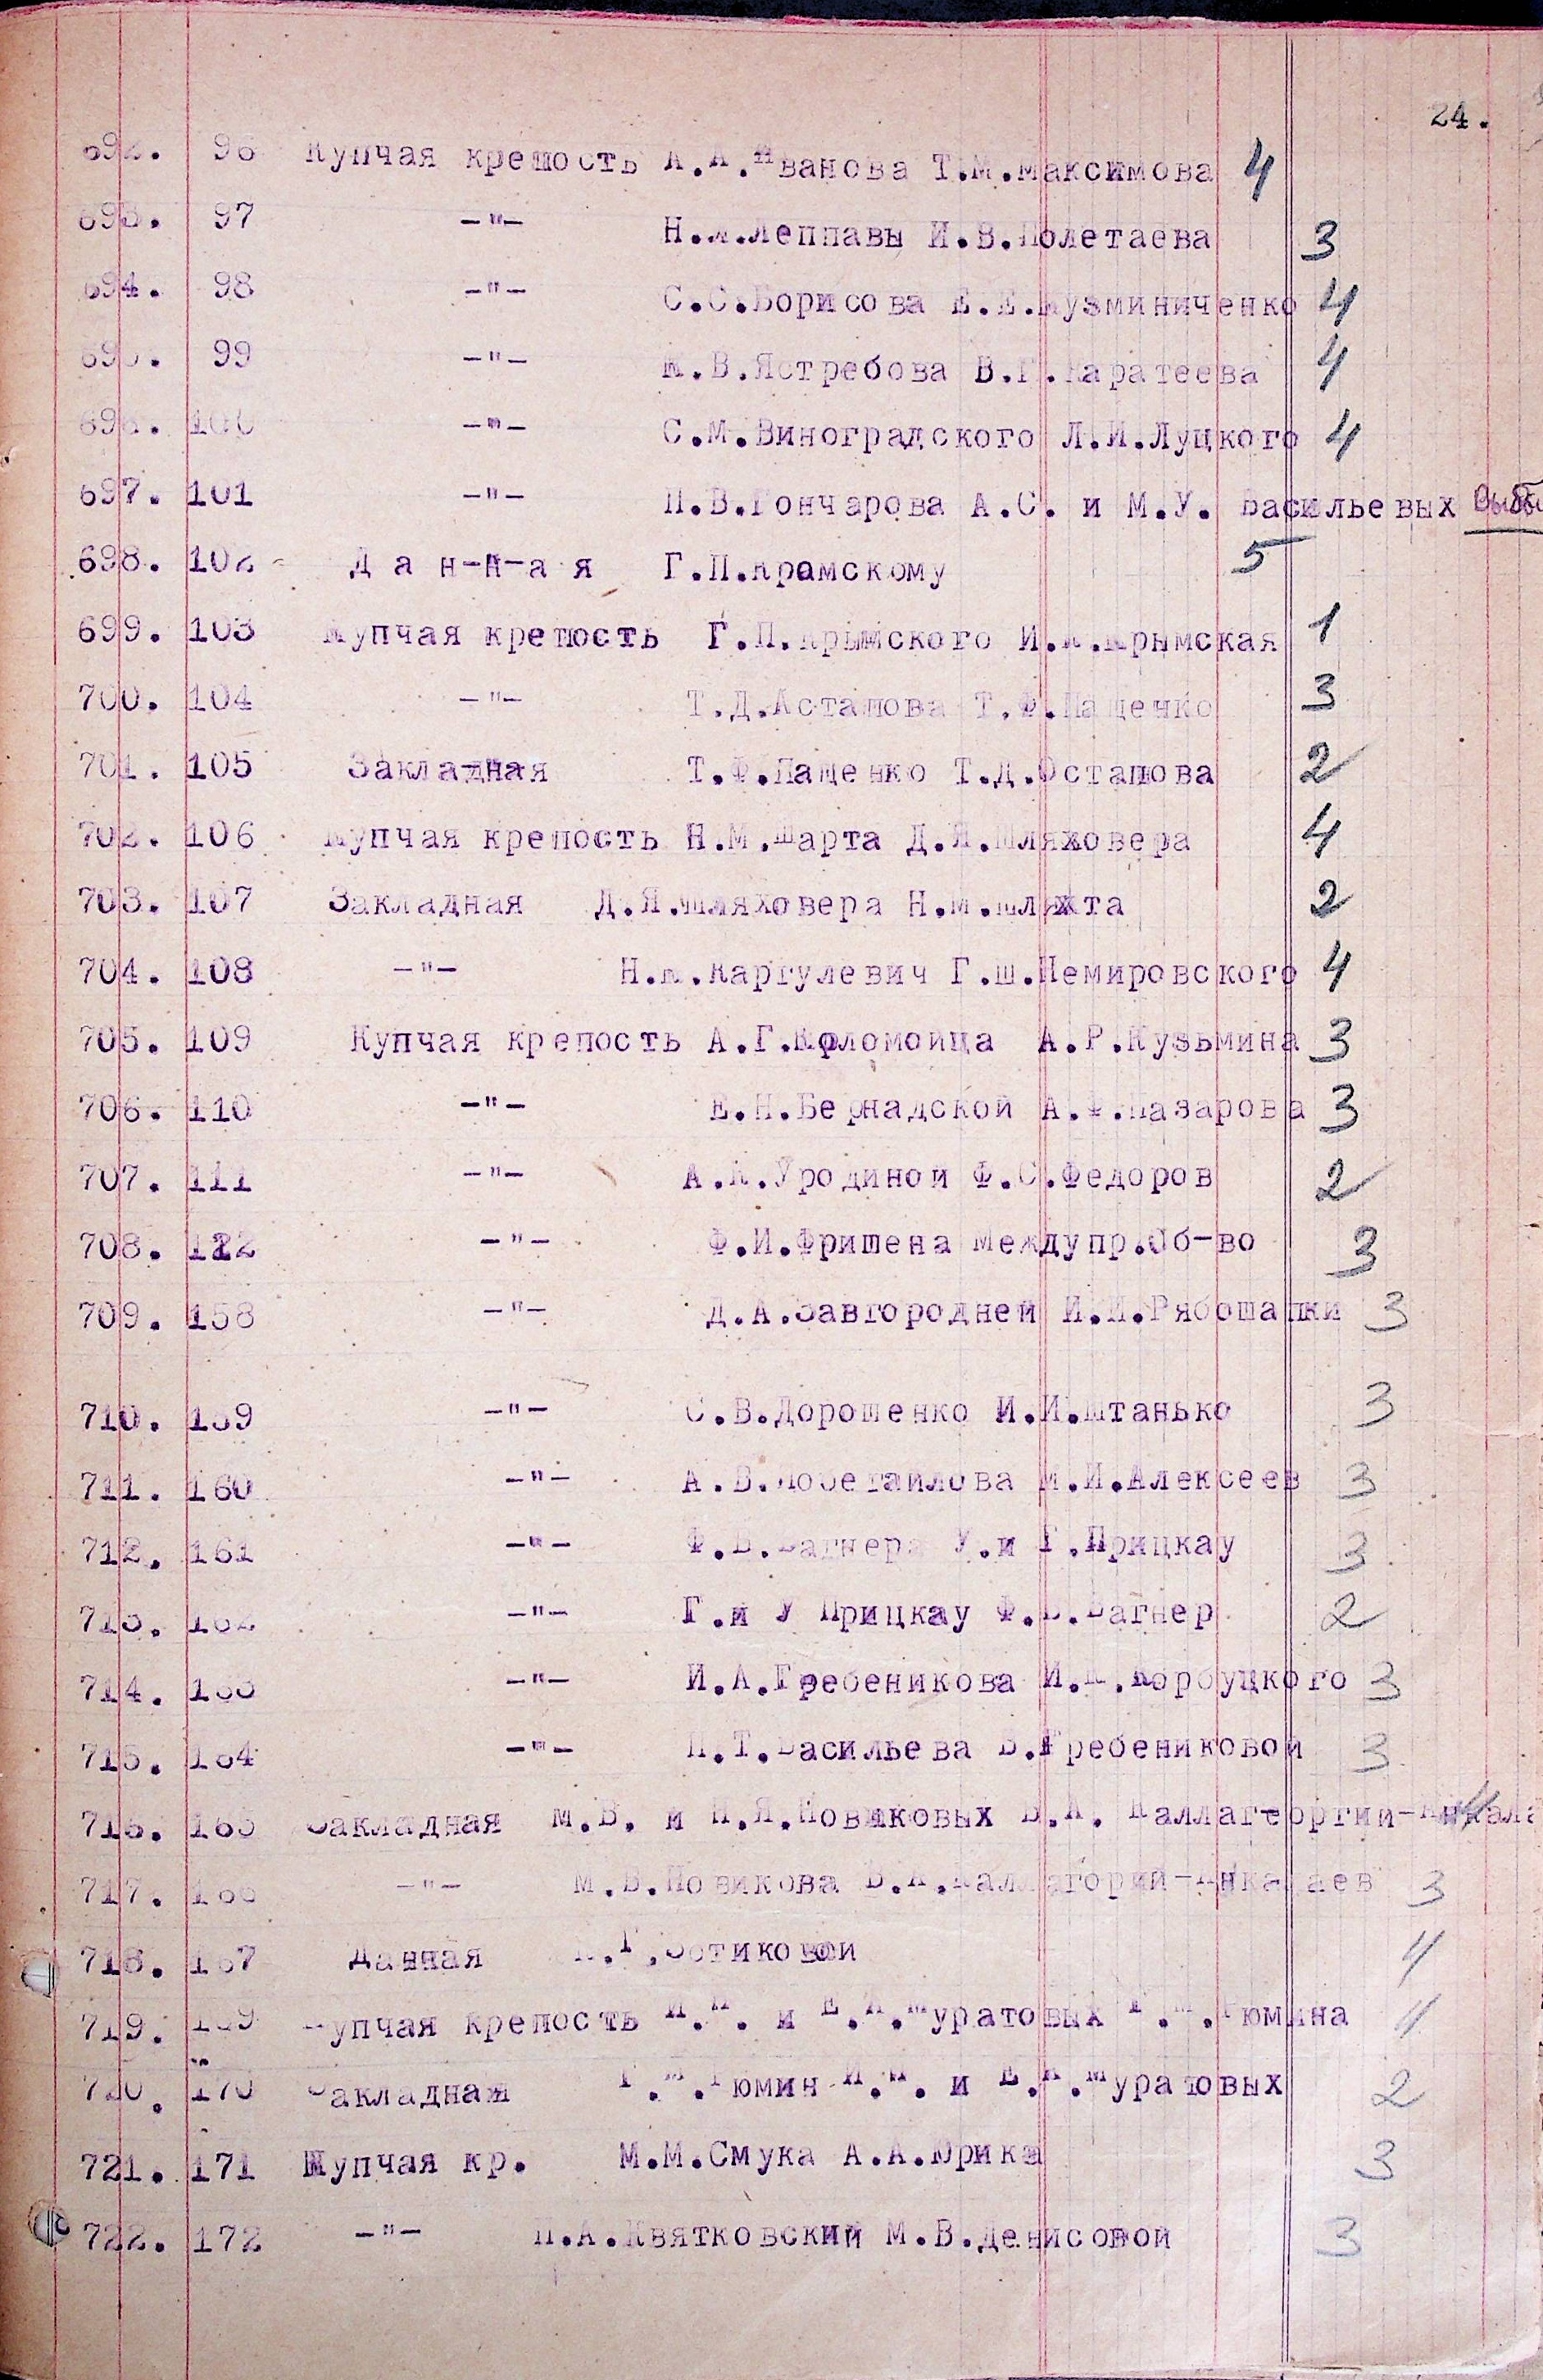 24.
692. 96 Купчая крепость А.А.Иванова Т.М.Максимова 4
693. 97 -"- Леппавы И.В.Полетаева 3
694. 98 -"- С.С.Борисова Е.Е.Кузминиченко 4
695. 99 -"- Ястребова Каратеева 4
696. 100 -"- С.М.Виноградского Л.И.Луцкого 4
697. 101 -"- П.В.Гончарова А.С. и М.У. Васильевых
698. 102 Д а н-н-а я Г.П.Крамскому 5
699. 103 Купчая крепость Г.П.Крымского Крымская 1
700. 104 -"- Т.Д.Асташова Т.Ф.Пащенко 3
701. 105 Закладная Т.Ф.Пащенко Т.Д.Осташова 2
702. 106 Купчая крепость Н.М.Шарта Д.Я.Шляховера 4
703. 107 Закладная Д.Я.Шляховера Н.М.Шляхта 2
704. 108 -"- Каргулевич Г.Ш.Немировского 4
705. 109 Купчая крепость А.Г.Коломойца А.Р.Кузьмина 3
706. 110 -"- Е.Н.Бернадской А.Ф.Назарова 3
707. 111 -"- А.К.Уродиной Ф.С.Федоров 2
708. 122 -"- Ф.И.Фришена Междупр.Об-во 3
709. 158 -"- Д.А.Завгородней И.И.Рябошапки 3
710. 159 -"- С.В.Дорошенко И.И.Штанько 3
711. 160 -"- А.В. М.И.Алексеев 3
712. 161 -"- Ф.В.Вагнера У.и Г.Прицкау 3
713. 162 -"- Г.и У Прицкау Ф.В.Вагнер 2
714. 163 -"- И.А.Гребеникова Корбуцкого 3
715. 164 -"- П.Т.Васильева В.Гребениковой 3
716. 165 Закладная М.В. и Н.Я.Новиковых
717. 166 -"- М.В.Новикова 3
718. 167 Данная 4
719. 169 Купчая крепость и Муратовых Тюмина 4
720. 170 Закладная Тюмин и Муратовых 2
721. 171 Купчая кр. М.М.Смука А.А.Юрика 3
722. 172 -"- П.А.Квятковский М.В.Денисовой 3